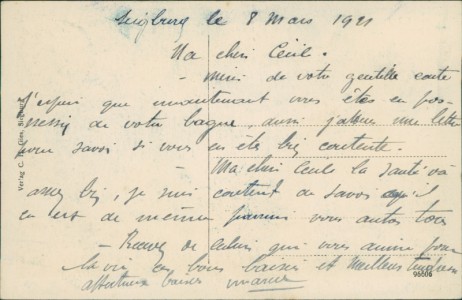 Siegburg le 8 Mars 1921
Ma cheri Cecile.
- Merci de votre gentille carte
J'espère que maintenant vous êtes en pos-
session de votre bague, aussi j'attends une lettre
pour savoir si vous en été bien contente.
- Ma cheri Cecile la santé va
assez bien, je suis content de savoir qu'il
en est de même pour vous autres tous
- Recevez de celui qui vous aime pour
la vie les bons baisers et meilleurs
affectueux baisers
Verlag C.
96606